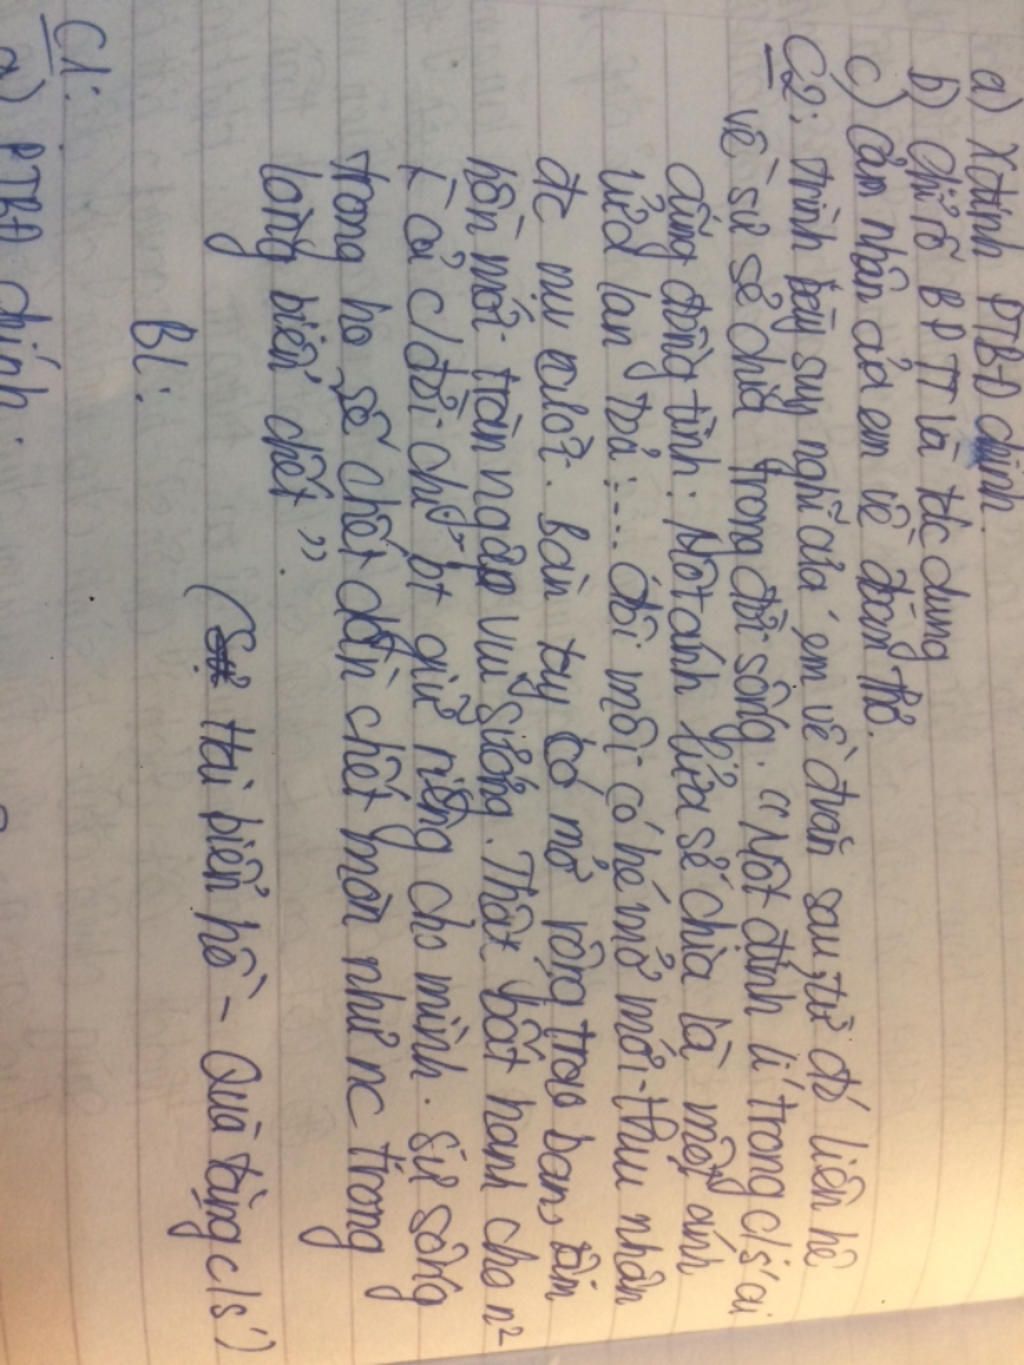 a) Xđịnh PTBĐ chính.
b) Chỉ rõ BPTT và tác dụng
c) Cảm nhận của em về đoạn thơ.
C2: Trình bày suy nghĩ của em về đvăn sau, từ đó liên hệ
về sự sẻ chia trong đời sống. "Một định lí trong c/s ai
cũng đồng tình: Một ánh lửa sẻ chia là một ánh
lửa lan tỏa:... đôi môi có hé mở mới thu nhận
đc nụ cười. Bàn tay có mở rộng trao ban, tâm
hồn mới tràn ngập vui sướng. Thật bất hạnh cho n²
cả c/đời chỉ bt giữ riêng cho mình. Sự sống
trong họ sẽ chết dần chết mòn như nc trong
lòng biển chết"
( Hai biển hồ - Quà tặng c/s)
Bl:
C1:
a) PTBĐ chính: